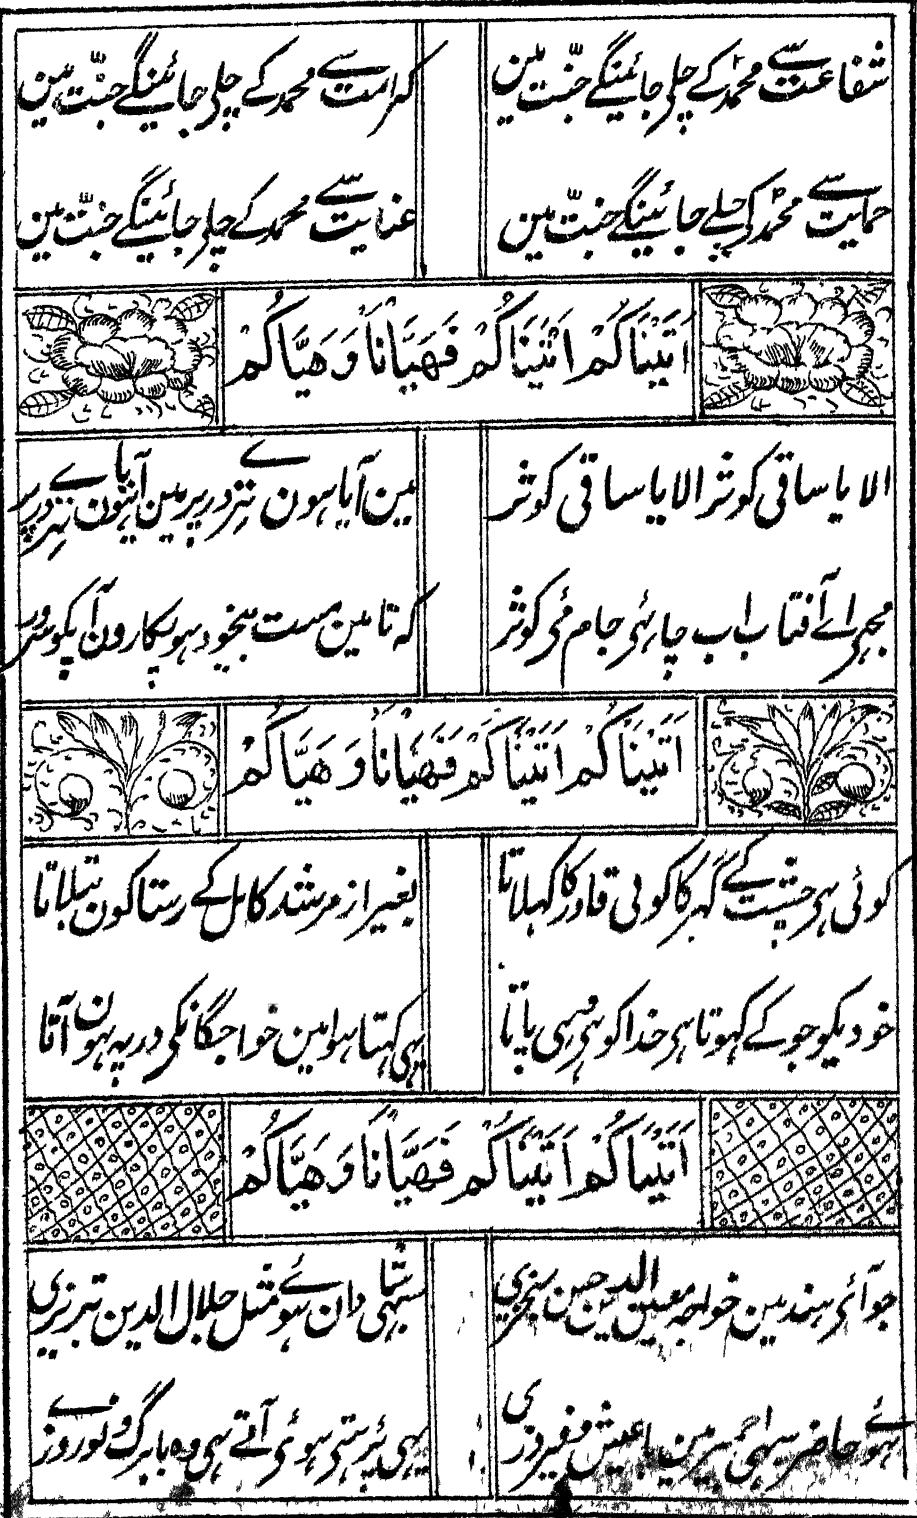 شفاعت سے محمد کے چلی جائینگے جنّت مین
کرامت سے محمد کے چلی جائینگے جنّت مین
حمایت سے محمد کی چلے جائینگے جنّت مین
عنایت سے محمد کے چلی جائینگے جنّت مین
اَتَیْنَاکُمْ اَتَیْنَاکُمْ فَهَیَّانَا وَ هَیَّاکُمْ
الا یا ساقی کوثر الا یا ساقی کوثر
مین آیا ہون تیرے در پر مین آیا ہون تیرے در پر
مجہی اے آفتاب اب چاہئی جام می کوثر
کہ تا مین مست بیخود ہو پکارون آپکو سرور
اَتَیْنَاکُمْ اَتَیْنَاکُمْ فَهَیَّانَا وَ هَیَّاکُمْ
کوئی ہی چشت کے گہر کا کوئی قادر کا کہلاتا
بغیر از مرشد کامل کے رستا کون بتلاتا
خودیکو جو کے کہوتا ہی خدا کو ہی وہی پاتا
یہی کہتا ہوا مین خواجگانکی در پہ ہون آتا
اَتَیْنَاکُمْ اَتَیْنَاکُمْ فَهَیَّانَا وَ هَیَّاکُمْ
جو آئی ہند مین خواجہ معین الدین حسن سنجری
شہی دان ہوئے مثل جلال الدین تبریزی
ہوئے حاضر سبہی مین با عیش و فیروزی
یہی ہوئی آتے ہی وہ با برگ و نوروزے